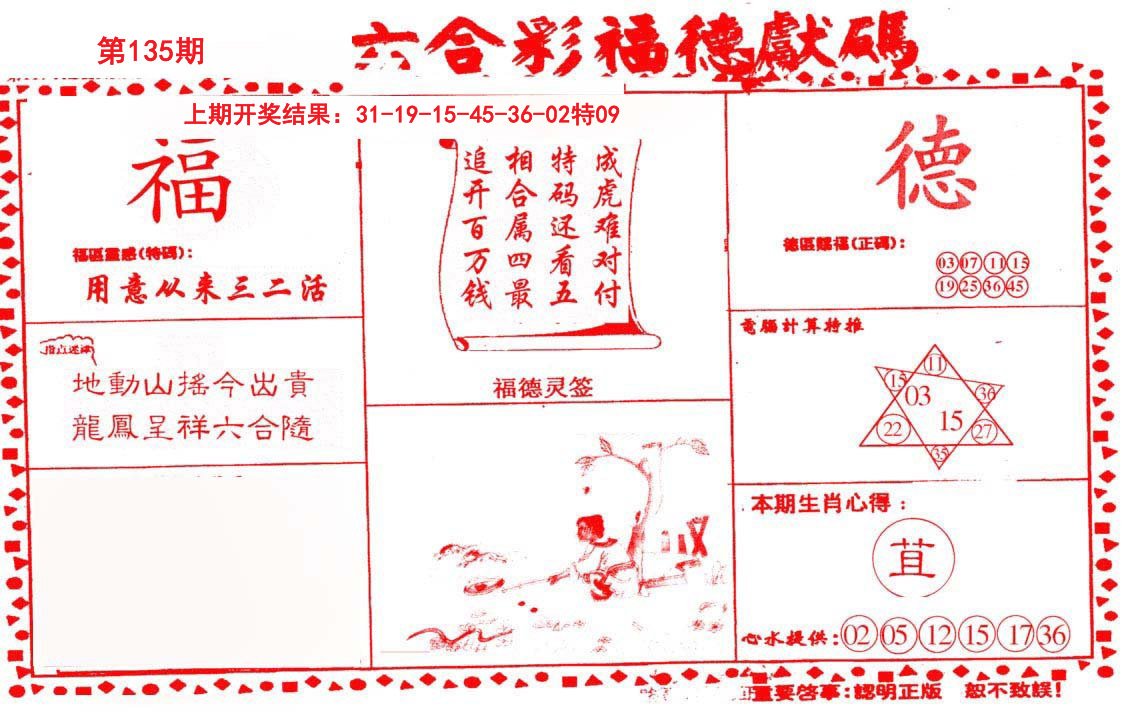 第135期
六合彩福德獻碼
上期开奖结果：31-19-15-45-36-02特09
福
福區靈感(特碼)：
用意从来三二活
地動山搖今出貴
龍鳳呈祥六合隨
成虎难对付
特码还看五
相合属四最
追开百万钱
福德灵签
德
德區賜福(正碼)：
03 07 11 15
19 25 36 45
電腦計算特推
11
15
36
03
15
22
27
35
本期生肖心得：
苴
心水提供：02 05 12 15 17 36
重要啓事：認明正版 恕不致誤！